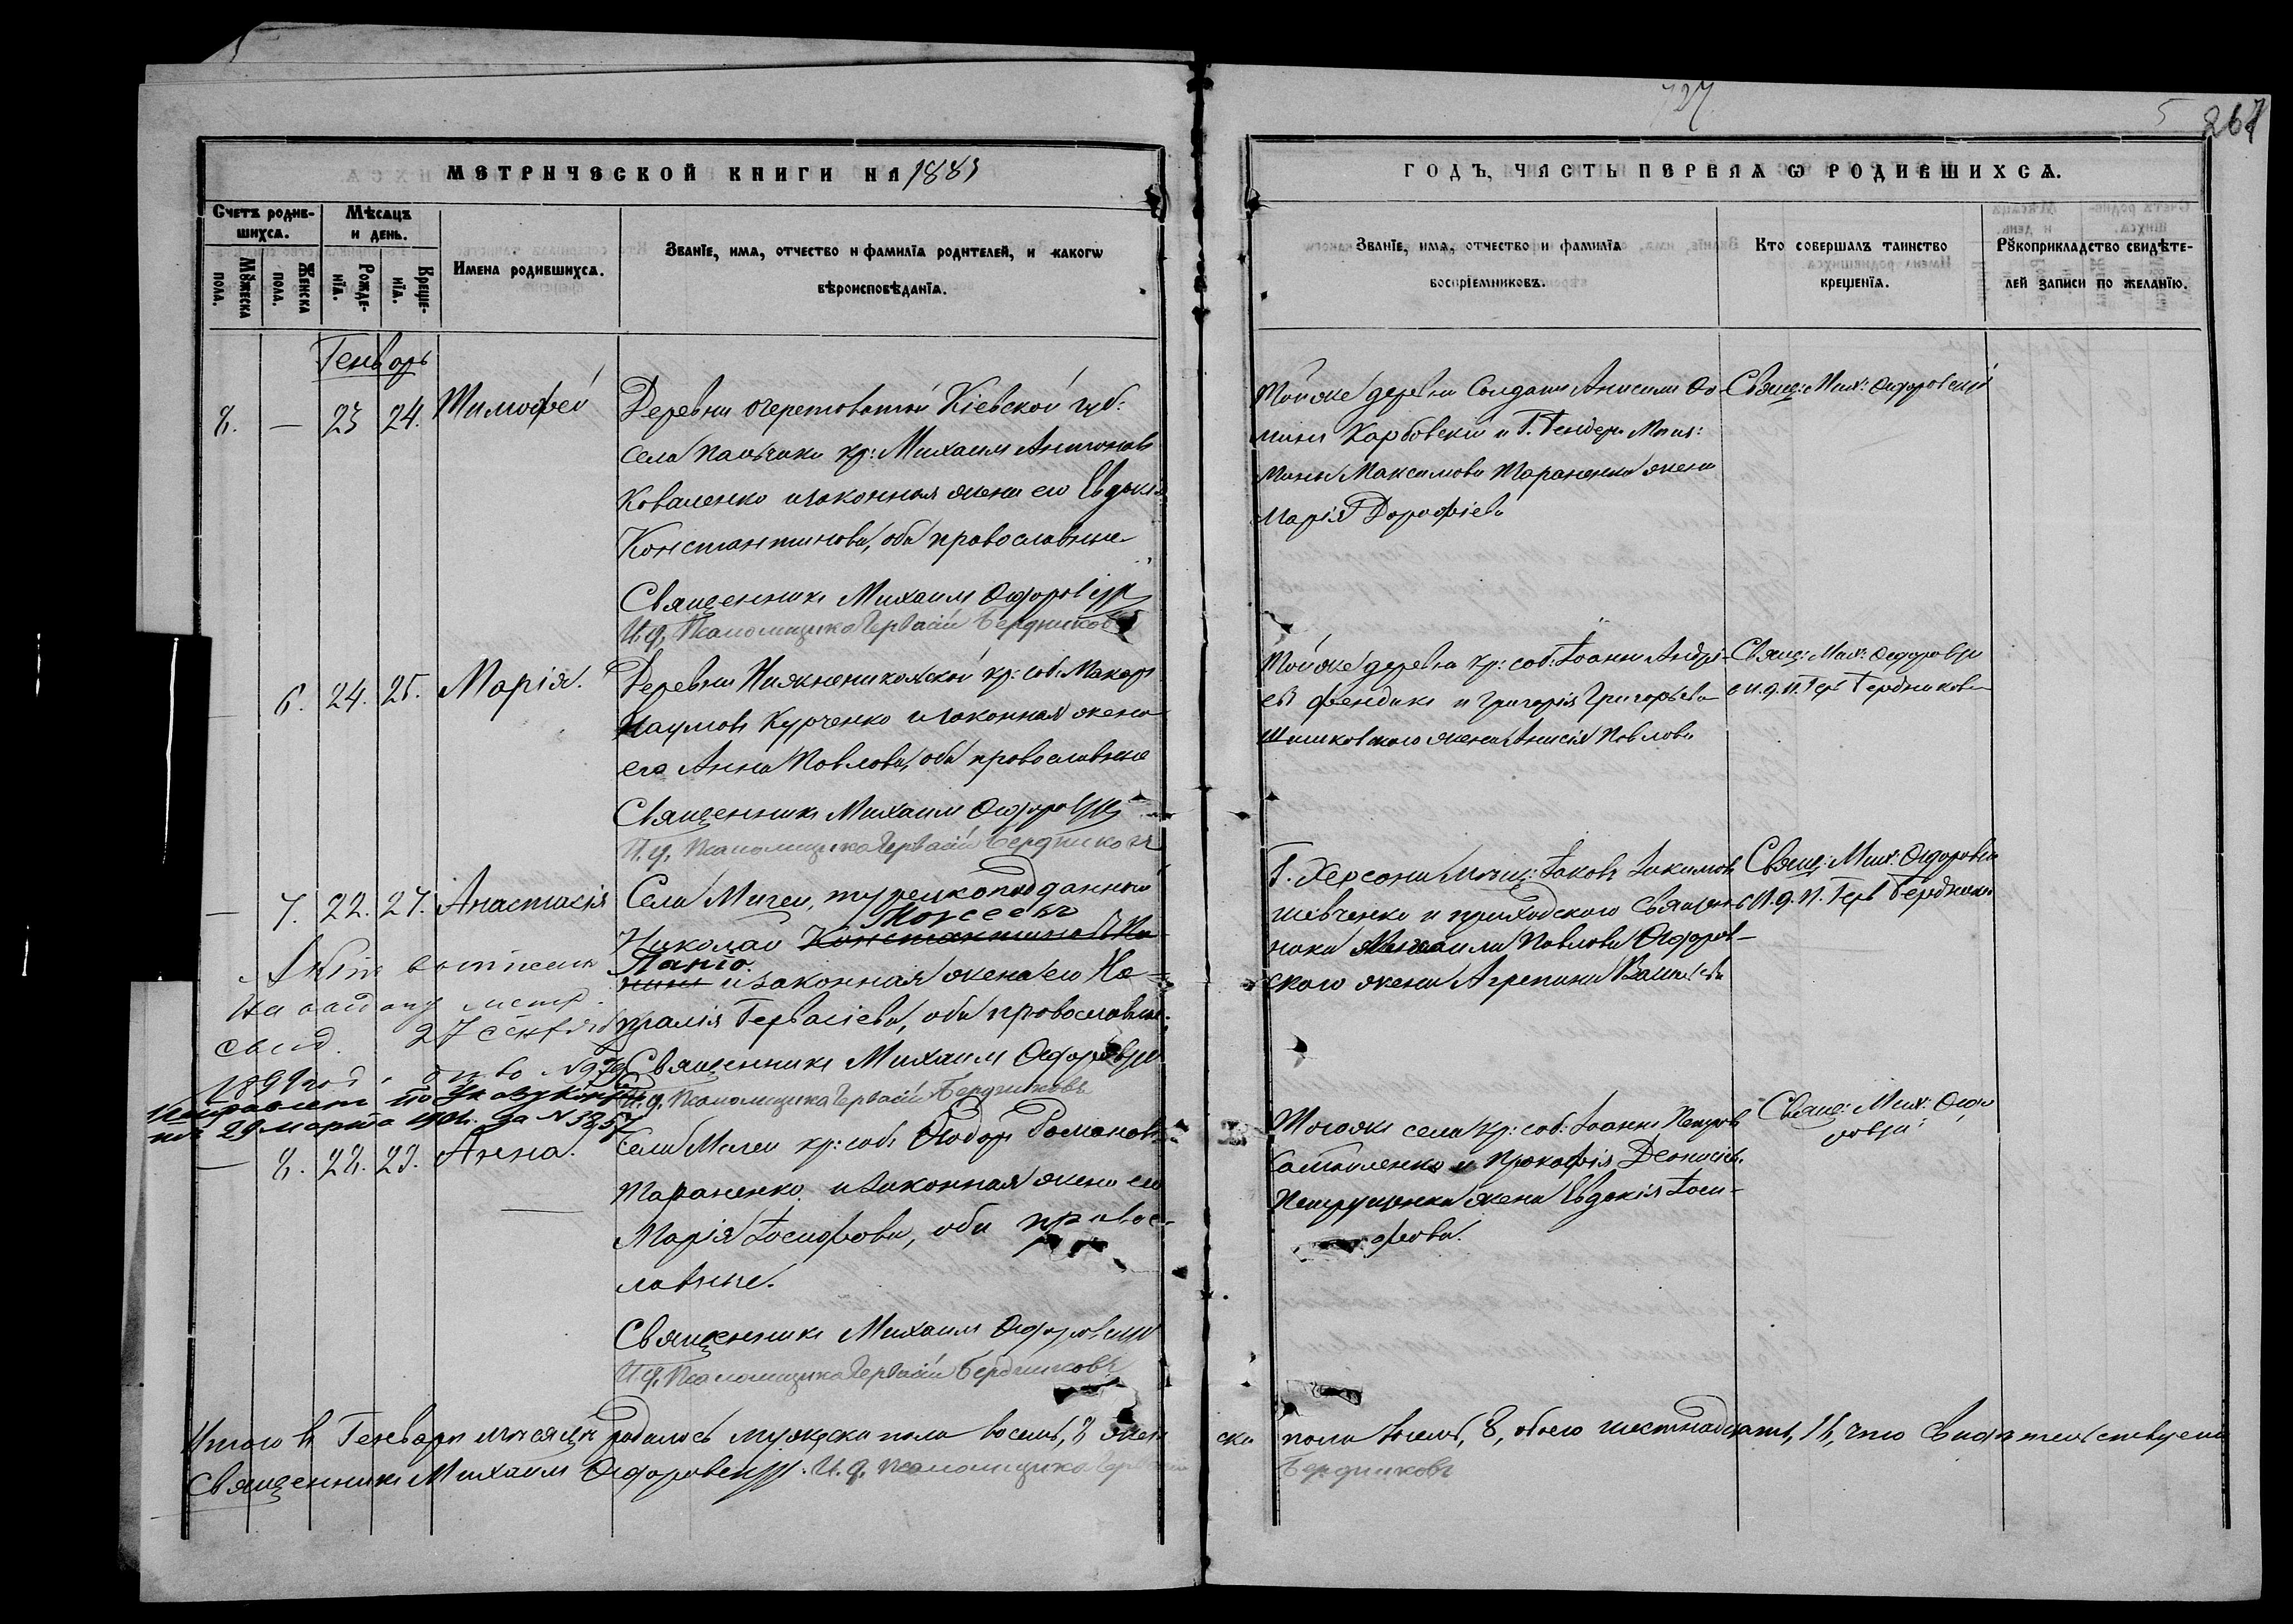 727
5
267
МЕТРИЧЕСКОЙ КНИГИ НА 1883
ГОДЪ, ЧАСТЬ ПЕРВАЯ Ѡ РОДИВШИХСѦ.
Счетъ родив-
шихсѧ.
Мѣсѧцъ
и день.
Мꙋжеска
пола.
Женска
пола.
Рожде-
нїѧ.
Креще-
нїѧ.
Имена родившихсѧ.
Званїе, имѧ, отчество и фамилїѧ родителей, и какогѡ
вѣроисповѣданїѧ.
Званїе, имѧ, отчество и фамилїѧ
воспрїемниковъ.
Кто совершалъ таинство
крещенїѧ.
Рꙋкоприкладство свидѣте-
лей записи по желанїю.
Генварь
8. — 23 24. Тимофей
Деревни Очеретоватой Кіевской губ:
села Пальчика кр: Михаилъ Антоновъ
Коваленко и законная жена его Евдокія
Константинова, оба православные
Священникъ Михаилъ Ѳедоровскій
И. д. Псаломщика Гервасій Бердниковъ
Тойже деревни Солдатъ Анисимъ Ѳо-
минъ Карбовскій и Г. Бендеръ Мѣщ:
Максимова Тараненка жена
Марія Дорофіева
Свящ: Мих: Ѳедоровскій
6. 24. 25. Марія.
Деревни Нижненикольской кр: соб: Макаръ
Наумовъ Курченко и законная жена
его Анна Павлова, оба православные
Священникъ Михаилъ Ѳедоровскій
И. д. Псаломщика Гервасій Бердниковъ
Тойже деревни кр: соб: Іоаннъ Андре-
евъ Фендикъ и Григорія Григорьева
Шишковского жена Анисія Павлова
Свящ: Мих: Ѳедоровскій
с И. д. П. Герв Бердниковъ
— 7. 22. 27. Анастасія
Села Мигеи, турецкоподданный
Моисеевъ
Николай Константиновъ
Папіо.
и законная жена его На-
талія Гервасіева, оба православные.
Священникъ Михаилъ Ѳедоровскій
И. д. Псаломщика Гервасій Бердниковъ
Г. Херсона Мѣщ: Іаковъ Іакимовъ
Шевченко и приходского Священ-
ника Михаила Павлова Ѳедоров-
ского жена Агрепина Васильева
Свящ: Мих: Ѳедоровскій
с И. д. П. Герв Бердниковъ
выписанъ
метр.
свид. 27 сентября
1899 год.
29 марта 1901 г. за N 3857
— 8. 28. 29. Анна.
Села Мигеи кр: соб: Ѳедоръ Романовъ
Тараненко и законная жена его
Марія Іосифова, оба правос-
лавные.
Священникъ Михаилъ Ѳедоровскій
И. д. Псаломщика Гервасій Бердниковъ
Тогоже села кр: соб: Іоаннъ Петровъ
и Прокофія Денисова
Петрущенка жена Евдокія Іоси-
фова.
Свящ: Мих: Ѳедо
ровскій
Итого въ Генварѣ мѣсяцѣ родилось мужеска пола восемь, 8 жен
ска пола восемь, 8, обоего шестнадцать, 16, что свидѣтельствуемъ
Священникъ Михаилъ Ѳедоровскій. И. д. Псаломщика Гервасій
Бердниковъ